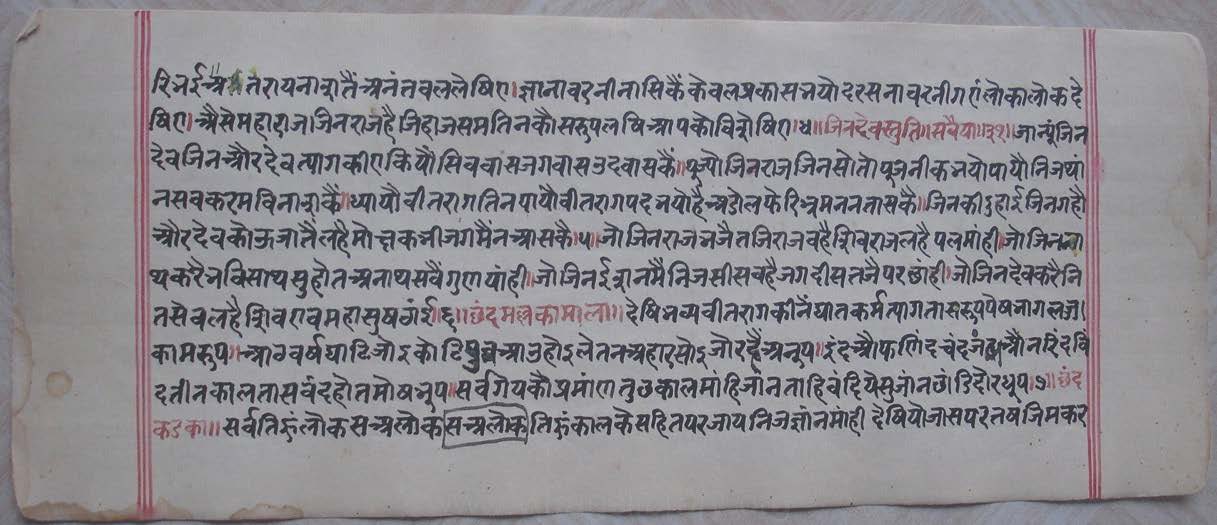 तरायनाशतैं अनंतबललेषिए। ज्ञानावरनीनासिकैं केवलप्रकासभयो दरसनावरनीगएं लोकालोकदे
षिए। औसेमहाराजजिनराजहै जिहाजसम तिनकौ सरूपलषि आपकोविशेषिए। ४॥ जिनदेवस्तुति॥ सवैया॥ ३१। जात्यूंजिन
देवजिनऔरदेवत्यागकीए सिववासजगवासउदवासकैं॥ पूज्योजिनराजजिनसोतोपूजनीकभयो ध्यायौनिजथां
नसबकरमविनाशकैं॥ ध्यायौवीतरागतिनपायौवीतरागपद भयोहैअडोलफेरिभ्रमननतासकै। जिनकीदुहाईजिनगहौ
औरदेवकोऊ जातैलहैमोक्षकभीजगमैंनआसकै। ५। जोजिनराजभजैतजिराज वहैशिवराजलहैपलमांही। जोजिनना
थकरैभविसाथ सुहोतअनाथसवैगुणयांही। जोजिनईशनमैनिजसीस वहैजगदीसतजैपरछांही। जोजिनदेवकरैनि
तसेव लहैशिवएवमहासुष ६॥ छंदमल्लकामाला॥ देषिभव्यवीतरागकीनघातकर्मत्याग तासरूपपेषभागलज।
कामरूप। कोटि आउहोइलेत सोइ जोरहैअनूप। इंदऔफणिंदचंद औनरिंदवि
दतीनकालतासवंदहोतमोषभूप॥ सर्वगेयकौप्रमांणतुछकालमांहिजांन ताहिवंदियेसुजांनछांडि ७॥ छंद
कडका॥ सर्वतिहुंलोकसअलोक सअलोक तिहुंकालकेसहितपरजाय निजज्ञांनमांही देषियोजासपरतषजिमकर